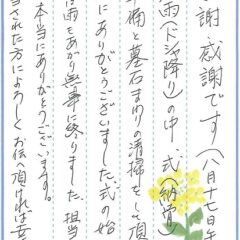 謝感謝です(八月十七日午
雨(ドシャ降り)の中、式(納骨)
準備と墓石まわりの清掃をして頂
にありがとうございました。式の始
は雨もあがり無事に終りました。担当
本当にありがとうございます。
当された方によろしくお伝え頂ければ幸